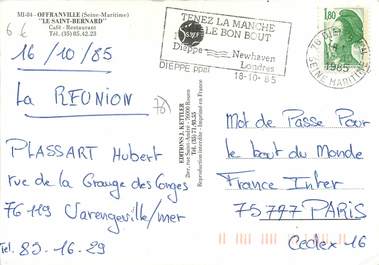 MI-04 - OFFRANVILLE (Seine-Maritime)
"LE SAINT-BERNARD"
Café - Restaurant
Tél. (35) 85.42.23
6 €
16/10/85
La REUNION
PLASSART Hubert
rue de la Grange des Corges
76119 Varengeville/mer
Tel. 83-16-29
EDITIONS J. KETTLER
2ter, rue Saint-André - 76000 Rouen
Tél. (35) 71.93.55
Reproduction interdite - Imprimé en France
TENEZ LA MANCHE
PAR LE BON BOUT
Dieppe Newhaven
Londres
DIEPPE ppal 18-10-85
1,80
76 DIEPPE
1985
SEINE MARITIME
Mot de Passe Pour
le bout du Monde
France Inter
75777 PARIS
Cedex 16